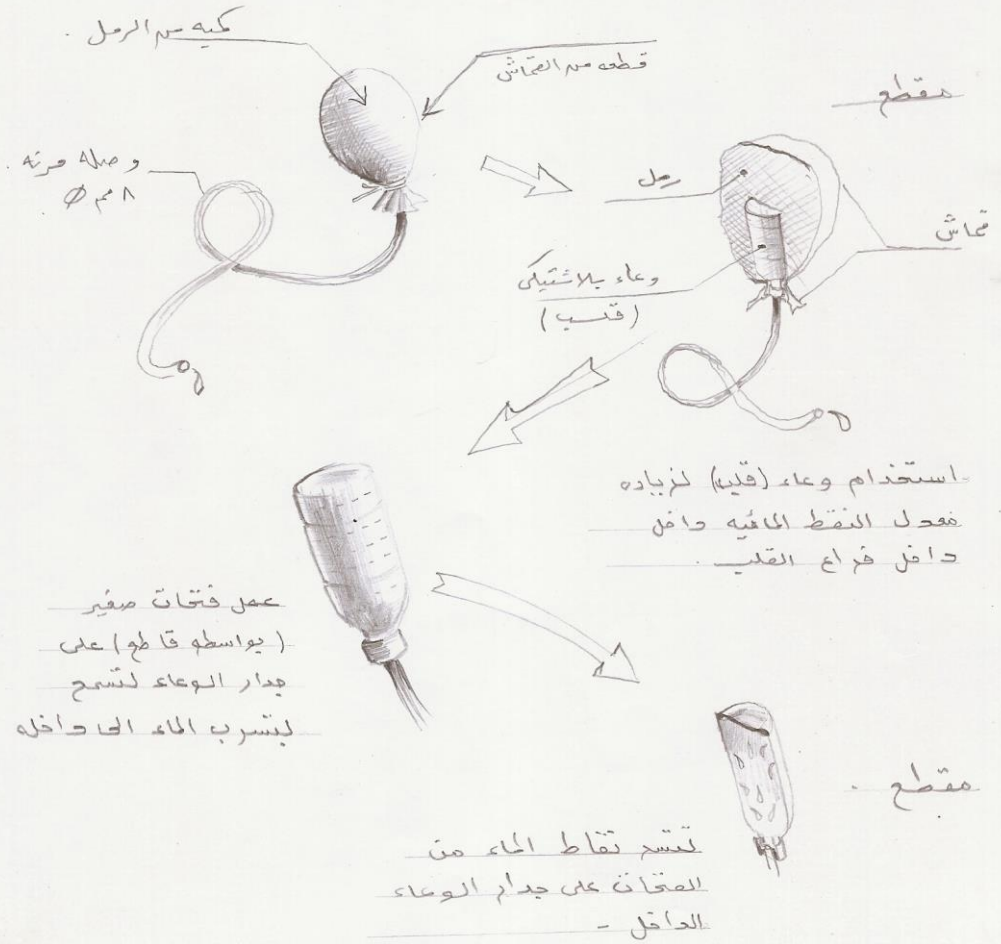 كميه من الرمل .
قطعه من القماش
وصله مرنه .
٨ مم Ø
مقطع
رمل
قماش
وعاء بلاشتيكى
(قلب)
استخدام وعاء (قلب) لزياده
معدل النقط المائيه داخل
داخل فراغ القلب .
عمل فتحات صغير
(بواسطه قاطع) على
جدار الوعاء لتسمح
بتسرب الماء الى داخله
مقطع .
نقاط الماء من
الفتحات على جدار الوعاء
الداخل -